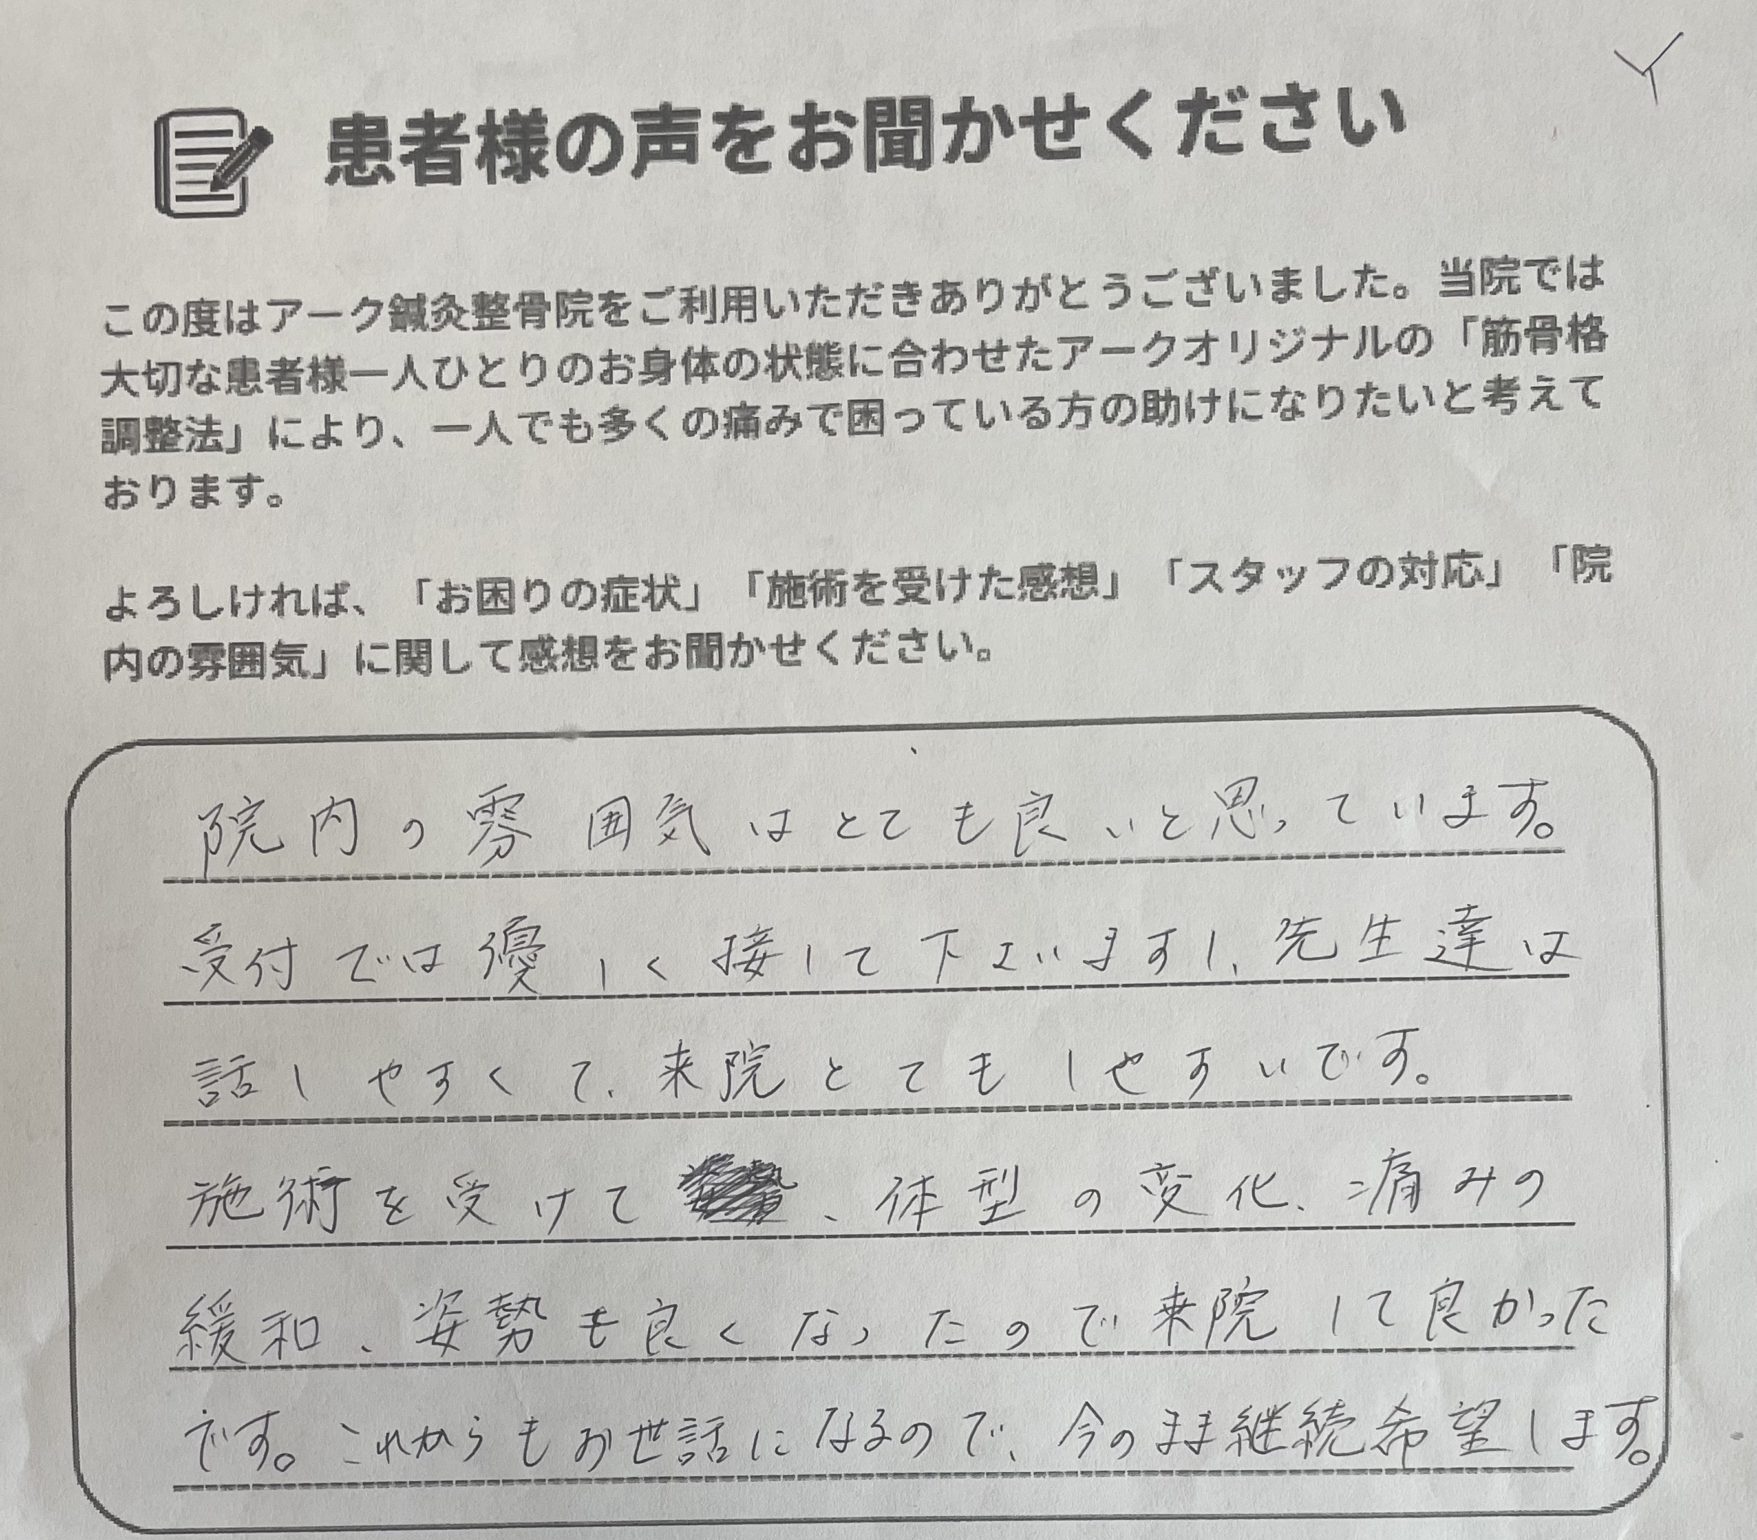 Y
患者様の声をお聞かせください
この度はアーク鍼灸整骨院をご利用いただきありがとうございました。当院では
大切な患者様一人ひとりのお身体の状態に合わせたアークオリジナルの「筋骨格
調整法」により、一人でも多くの痛みで困っている方の助けになりたいと考えて
おります。
よろしければ、「お困りの症状」「施術を受けた感想」「スタッフの対応」「院
内の雰囲気」に関して感想をお聞かせください。
院内の雰囲気はとても良いと思っています。
受付では優しく接して下さいますし、先生達は
話しやすくて、来院とてもしやすいです。
施術を受けて、体型の変化、痛みの
緩和、姿勢も良くなったので来院して良かった
です。これからもお世話になるので、今のまま継続希望します。